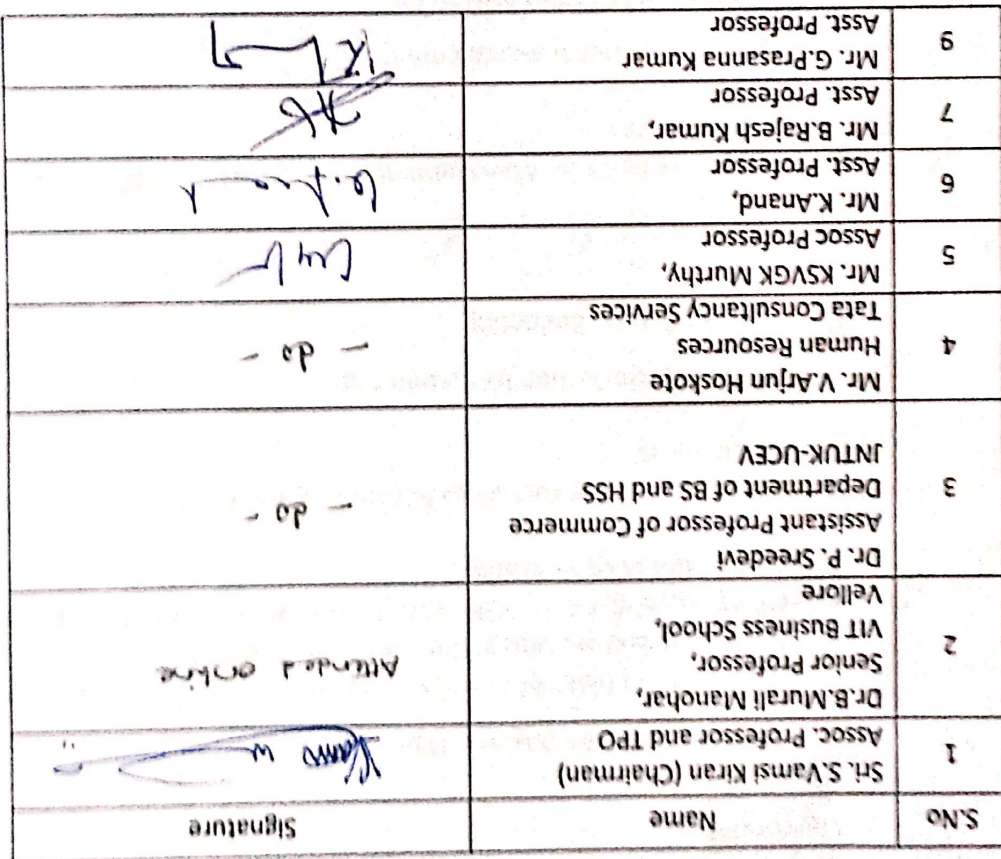 S.No Name Signature
1 Sri. S.Vamsi Kiran (Chairman)
Assoc. Professor and TPO
2 Dr.B.Murali Manohar,
Senior Professor,
VIT Business School,
Vellore
Attended online
3 Dr. P. Sreedevi
Assistant Professor of Commerce
Department of BS and HSS
JNTUK-UCEV
- do -
4 Mr. V.Arjun Hoskote
Human Resources
Tata Consultancy Services
- do -
5 Mr. KSVGK Murthy,
Assoc Professor
6 Mr. K.Anand,
Asst. Professor
7 Mr. B.Rajesh Kumar,
Asst. Professor
9 Mr. G.Prasanna Kumar
Asst. Professor